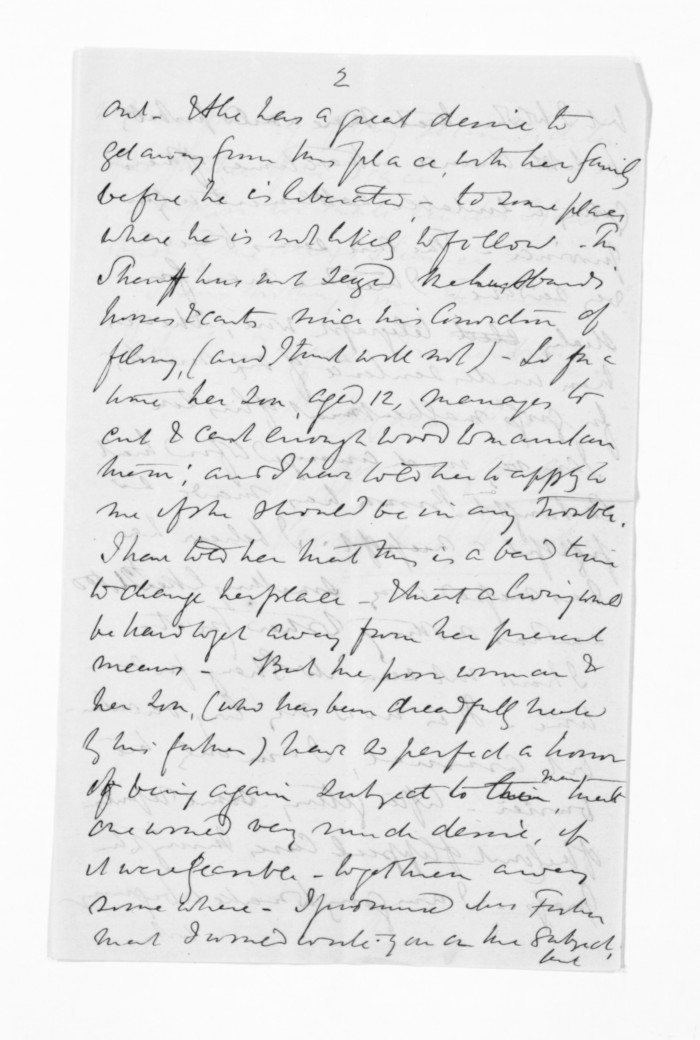 2
out - & she has a great desire to
get away from this place, with her family
before he is liberated, - to some place
where he is not likely to follow - The
Sheriff has not seized her husband's
horses & carts since his conviction of
felony, (and I trust will not) - So for a
time her son, aged 12, manages to
cut & cart enough wood to maintain
them; and I have told her to apply to
me if she should be in any trouble.
I have told her that this is a bad time
to change her place - & that a living would
be hard to get away from her present
means - But the poor woman &
her son, (who has been dreadfully treated
by his father) have so perfect a horror
of being again subject to their that
one would very much desire, if
it were feasible - to get them away
somewhere - I promised her Father
that I would write to you on the subject,
but